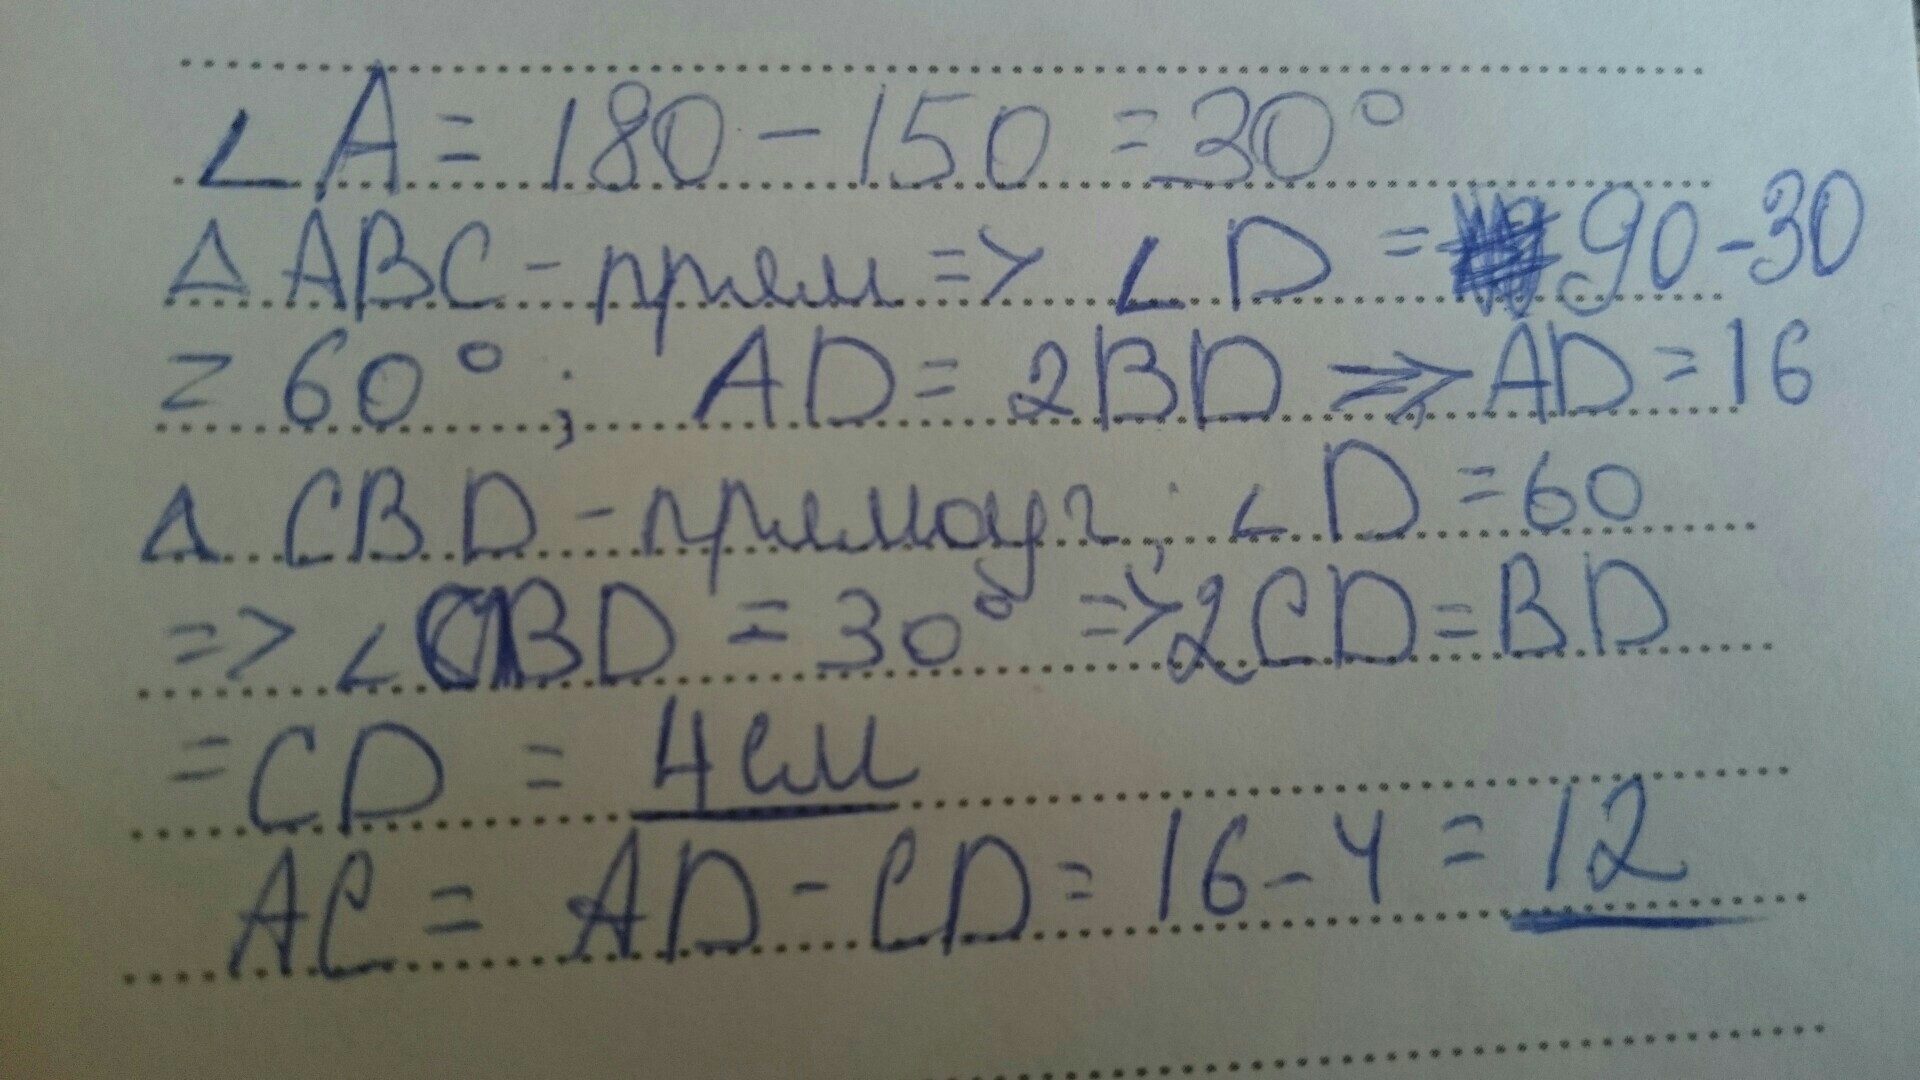 ∠A = 180 - 150 = 30°
Δ ABC - прям => ∠D = 90-30
= 60°; AD = 2BD => AD = 16
Δ CBD - прямоуг; ∠D = 60
=> ∠CBD = 30° => 2CD = BD
= CD = 4см
AC = AD - CD = 16 - 4 = 12